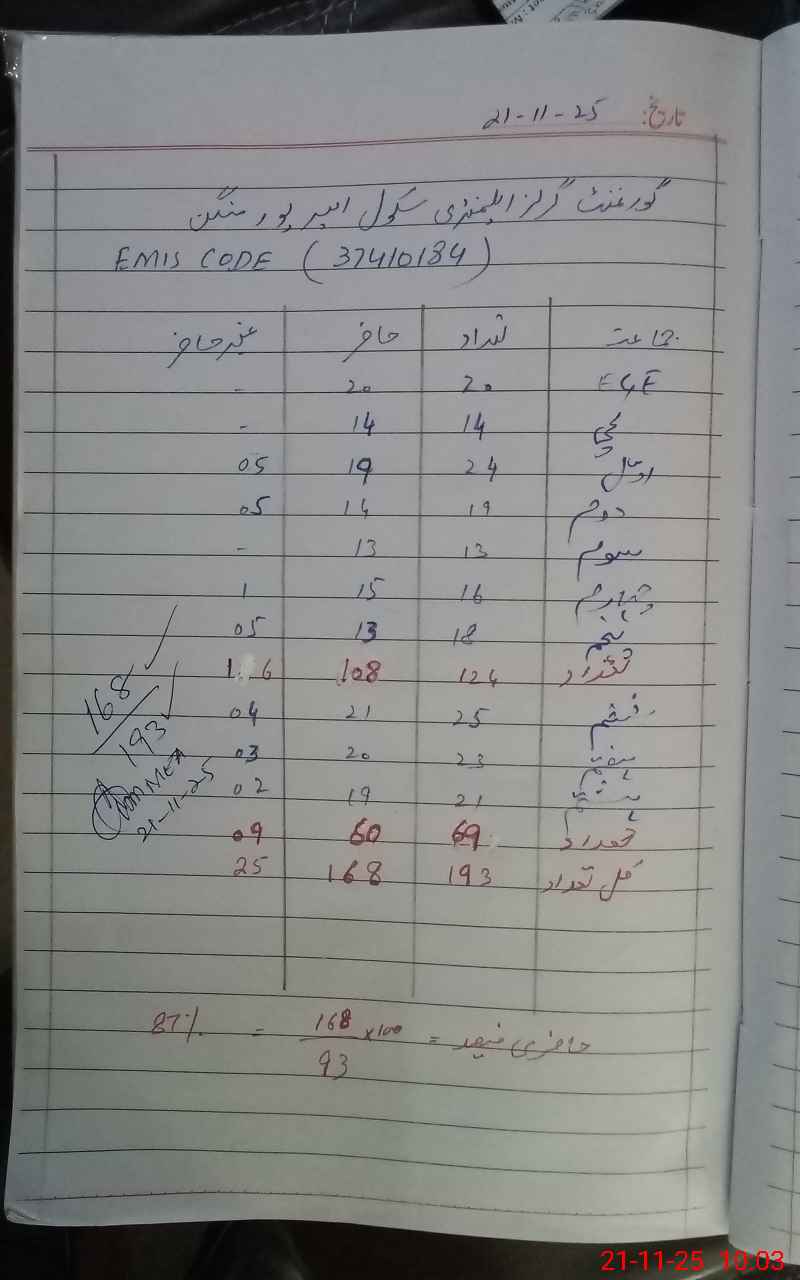 تاریخ: 21-11-25
گورنمنٹ گرلز ایلیمنٹری سکول امیر پور منگن
EMIS CODE (37410184)
جماعت تعداد حاضر غیر حاضر
ECE 20 20 -
کچی 14 14 -
اول 24 19 05
دوم 19 14 05
سوم 13 13 -
چہارم 16 15 1
پنجم 18 13 05
تعداد 124 108 16
ششم 25 21 04
ہفتم 23 20 03
ہشتم 21 19 02
تعداد 69 60 09
کل تعداد 193 168 25
168
193
21-11-25
حاضری فیصد = 168 x100 = 87%
93
21-11-25 10:03